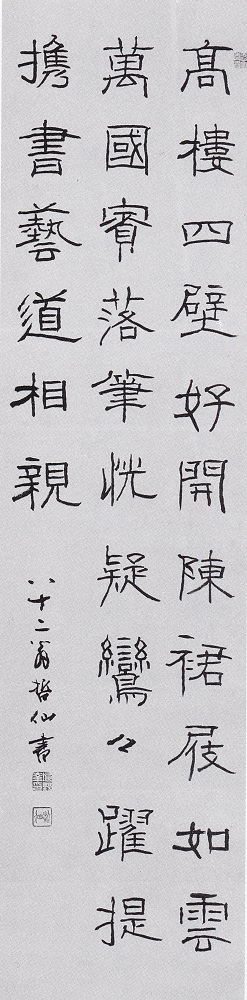 高樓四壁好開陳裙屐如雲
萬國賓落筆恍疑鸞々躍提
攜書藝道相親
八十二翁哲仙書